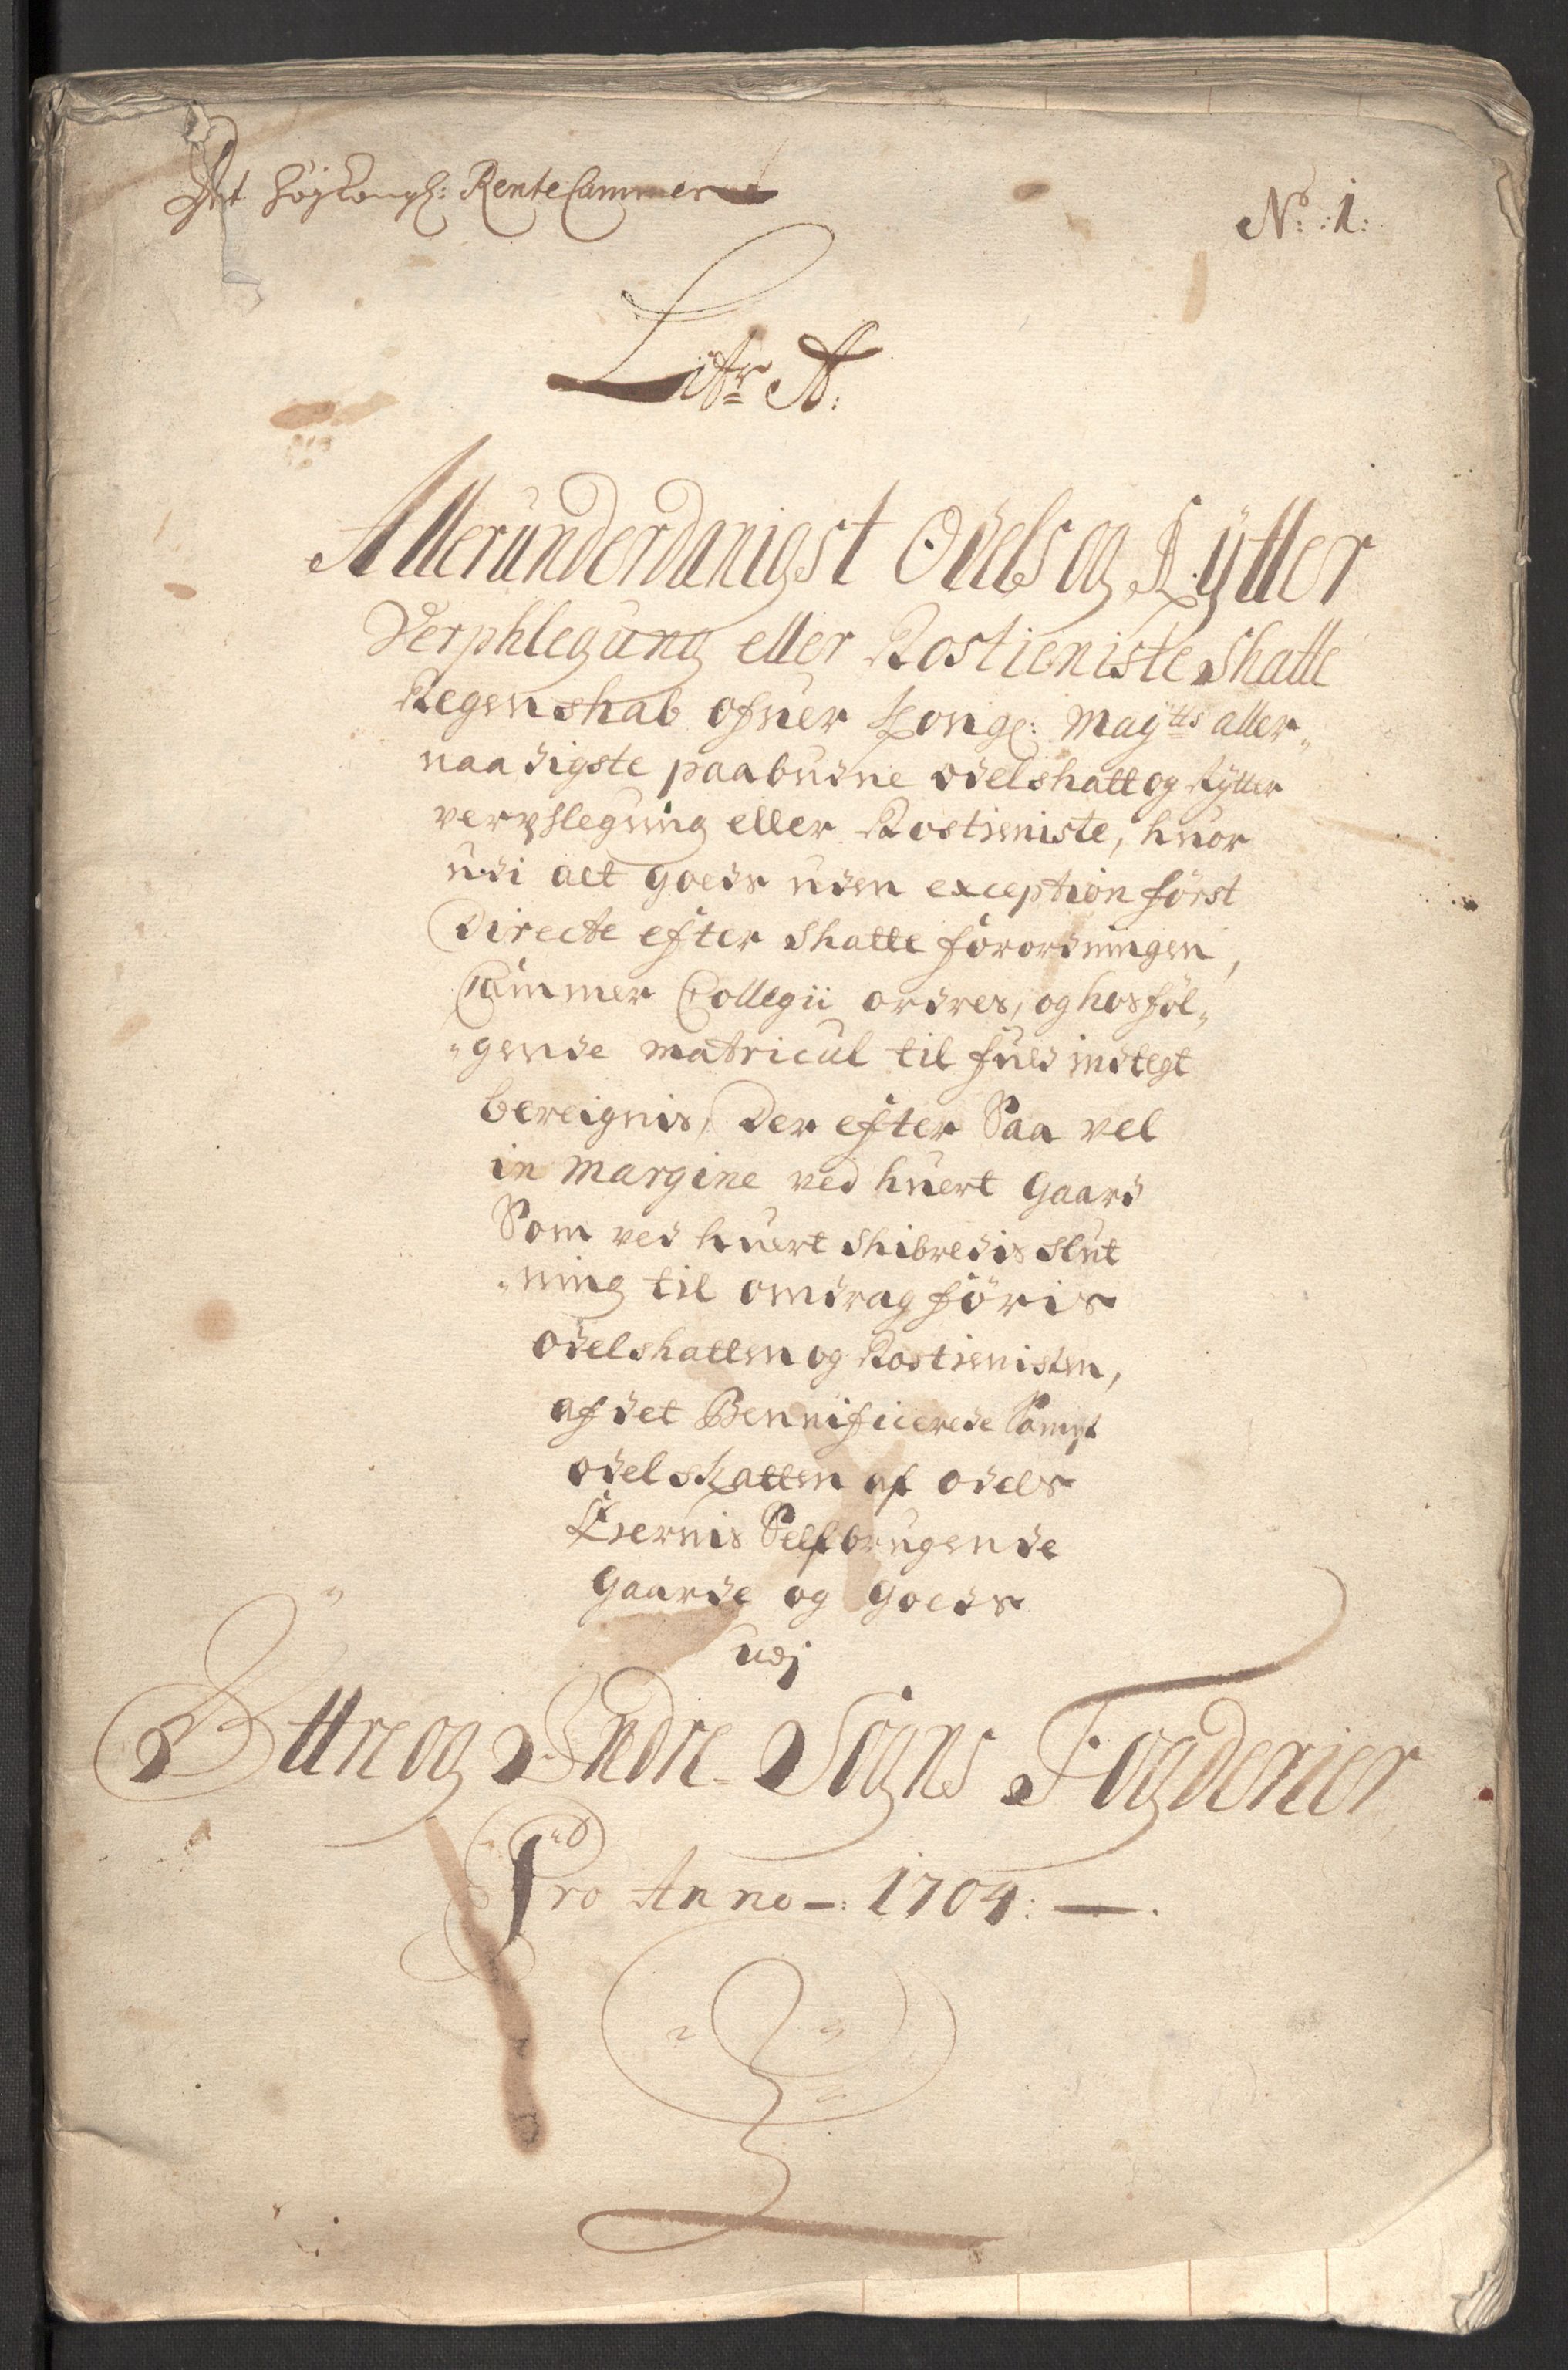 Det höÿkongl: RenteCammer
No: :1:
Litr A:
Allerunderdanigst Odels og Rÿtter
Verphlegung eller Rostieniste Skatte
Regenskab ofuer Kongl: Maÿtts aller„
naadigste paabudne odelskatt og Rÿtter
verpflegung eller Rostieniste, huor
udi alt goeds uden exception först
Directe efter Skatte forordningen,
Cammer Collegii ordres, og hosföl„
„gende matricul til fuld indtegt
bereignis, Der efter Saa vel
in Margine ved huert Gaard
Som ved huert Skibredis slut
„ning til omdrag föris
odelskatten og Rostienisten,
af det Beneificerede Sampt
odelskatten af odels
Eiernis Selfbrugende
Gaarde og Goeds
udj
Ÿttre og Indre Sogns Fogderier
Pro Anno –: 1704: —.